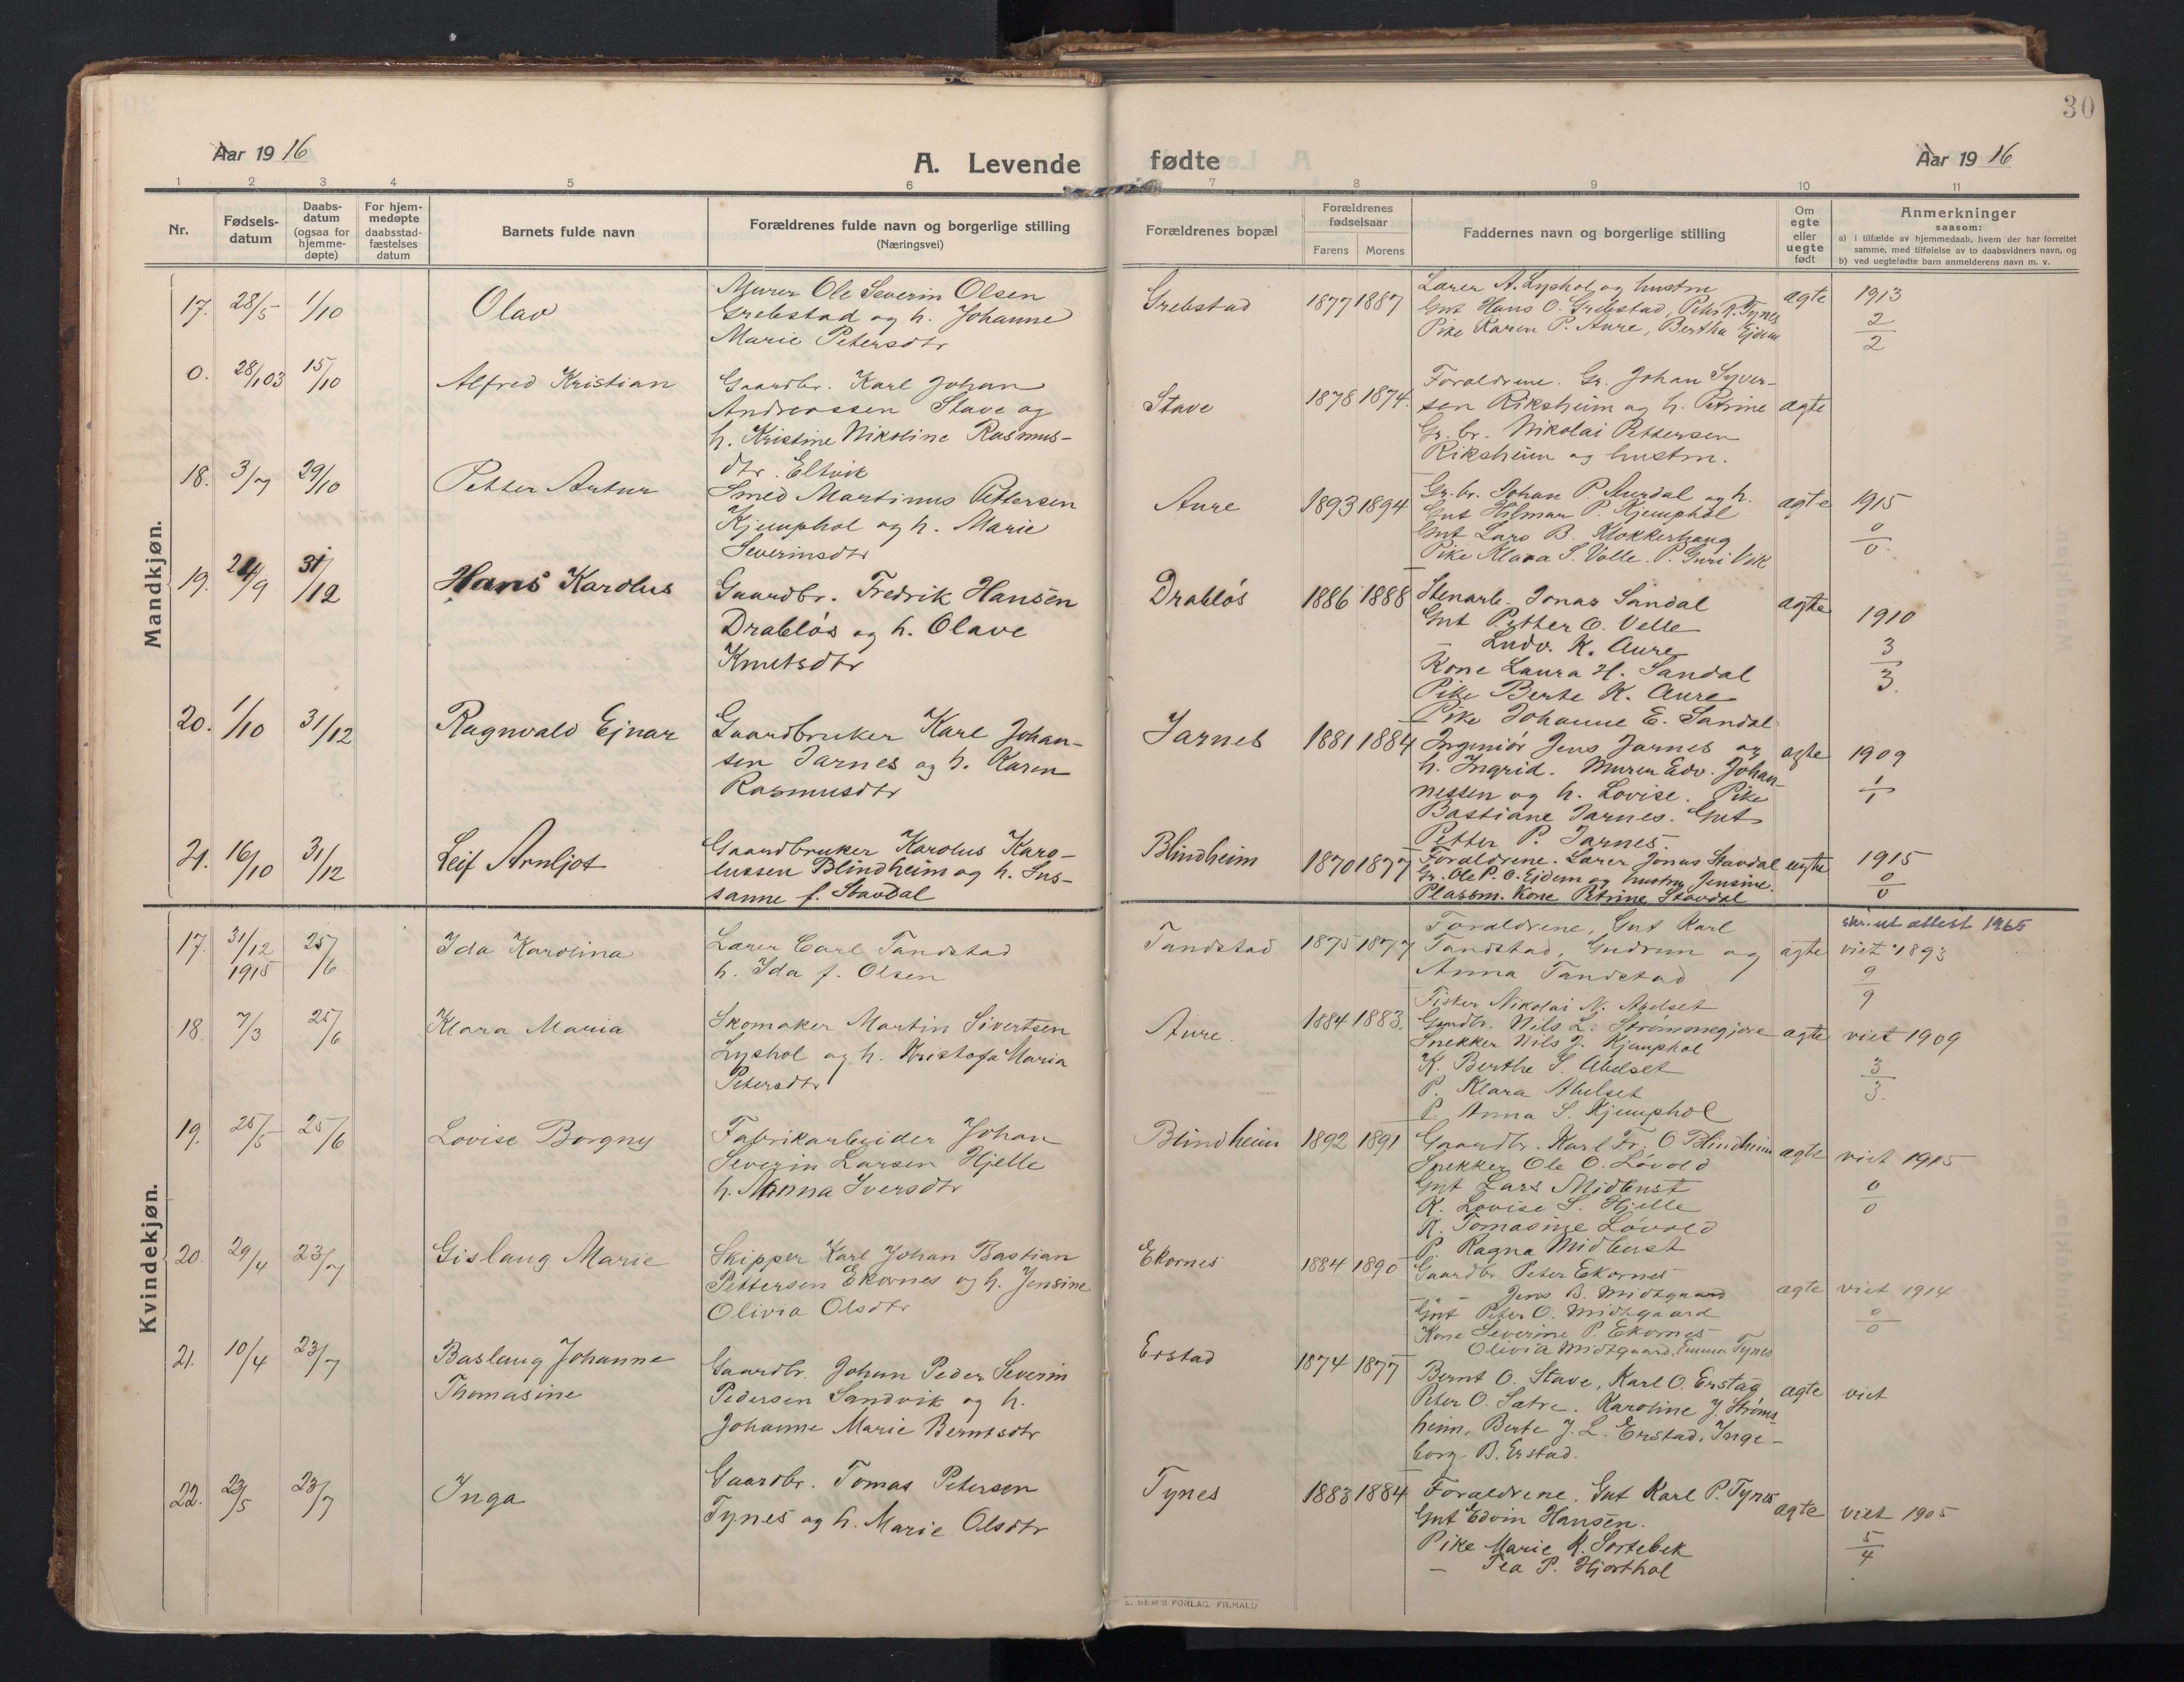 30
Aar 1916
A. Levende fødte
Aar 1916
1 2 3 4 5 6 7 8 9 10 11
Nr.
Fødsels-
datum
Daabs-
datum
(ogsaa for
hjemme-
døpte)
For hjem-
medøpte
daabsstad-
fæstelses
datum
Barnets fulde navn
Forældrenes fulde navn og borgerlige stilling
(Næringsvei)
Forældrenes bopæl
Forældrenes
fødselsaar
Farens Morens
Faddernes navn og borgerlige stilling
Om
egte
eller
uegte
født
Anmerkninger
saasom:
a) i tilfælde av hjemmedaab, hvem der har forrettet
samme, med tilføielse av to daabsvidners navn, og
b) ved uegtefødte barn anmelderens navn m. v.
Mandkjøn.
17. 28/5 1/10 Olav
Murer Ole Severin Olsen
Grebstad og h. Johanne
Marie Petersdtr
Grebstad 1877 1887
Lærer A. Lyshol og hustru
Gut Hans O. Grebstad, Peter R. Tynes
Pike Karen P. Aure, Bertha Ejdem
ægte 1913
2/2
0. 28/1 03 15/10 Alfred Kristian
Gaardbr. Karl Johan
Andreassen Stave og
h. Kristine Nikoline Rasmus-
dtr. Eltvik
Stave 1878 1874.
Forældrene. Gr. Johan Syver-
sen Riksheim og h. Petrine
Gr. br. Nikolai Pettersen
Riksheim og hustru.
ægte
18. 3/7 29/10 Petter Artur
Smed Martinus Pettersen
Kjemphol og h. Marie
Severinsdtr
Aure 1893 1894
Gr. br. Johan P. Aurdal og h.
Gut Hilmar P. Kjemphol
Gut Lars B. Klokkerhaug
Pike Klara S. Velle. P. Guri Vik
ægte 1915
0/0.
19. 24/9 31/12 Hans Karolus
Gaardbr. Fredrik Hansen
Drabløs og h. Olave
Knutsdtr
Drabløs 1886 1888
Stenarb. Jonas Sandal
Gut Petter O. Velle
— Ludv. K. Aure
Kone Laura H. Sandal
Pike Berte K. Aure
Pike Johanne E. Sandal
ægte 1910
3/3.
20. 1/10 31/12 Ragnvald Ejnar
Gaardbruker Karl Johan-
sen Jarnes og h. Karen
Rasmusdtr
Jarnes 1881 1884
Ingeniør Jens Jarnes og
h. Ingrid. Murer Edv. Johan-
nessen og h. Lovise. Pike
Bastiane Jarnes. Gut
Petter P. Jarnes.
ægte 1909
1/1
21. 16/10 31/12 Leif Arnljot
Gaardbruker Karolus Karo-
lussen Blindheim og h. Sus-
sanne f. Stavdal
Blindheim 1870 1877
Forældrene. Lærer Jonas Stavdal
Gr. Ole P. O. Ejdem og hustru Jensine.
Plassm. Kone Petrine Stavdal
ægte 1915
0/0
Kvindekjøn.
17. 31/12 1915 25/6 Ida Karolina
Lærer Carl Tandstad
h. Ida f. Olsen
Tandstad 1875 1877
Forældrene, Gut Karl
Tandstad, Gudrun og
Anna Tandstad
ægte
skr. ut attest 1965
viet 1893
9/9
18. 7/3 25/6 Klara Maria
Skomaker Martin Sivertsen
Lyshol og h. Kristofa Maria
Petersdtr
Aure. 1884 1883.
Fisker Nikolai N. Abelset
Gaardbr. Nils L. Strømmegjære
Snekker Nils J. Kjemphol
K. Berthe S. Abelset
P. Klara Abelset
P. Anna S. Kjemphol
ægte viet 1909
3/3.
19. 25/5 25/6 Lovise Borgny
Fabrikarbeider Johan
Severin Larsen Hjelle
h. Anna Iversdtr
Blindheim 1892 1891
Gaardbr. Karl Fr. O Blindheim
Snekker Ole O. Løvold
Gut Lars Midbust
K. Lovise S. Hjelle
K. Tomasine Løvold
P. Ragna Midbust
ægte viet 1915
0/0
20. 29/4 23/7 Gislaug Marie
Skipper Karl Johan Bastian
Pettersen Ekornes og h. Jensine
Olivia Olsdtr
Ekornes 1884 1890
Gaardbr. Peter Ekornes
— Jens B. Midtgaard
Gut Peter O. Midtgaard
Kone Severine P. Ekornes
Olivia Midtgaard. Emma Tynes
ægte viet 1914
0/0
21. 10/4 23/7 Baslaug Johanne
Thomasine
Gaardbr. Johan Peder Severin
Pedersen Sandvik og h.
Johanne Marie Berntsdtr
Erstad 1874 1877
Bernt O. Stave, Karl O. Erstad,
Peter O. Sætre. Karoline J. Strøms-
heim, Berte J. L. Erstad. Inge-
borg B. Erstad.
ægte viet
22. 23/5 23/7 Inga
Gaardbr. Tomas Petersen
Tynes og h. Marie Olsdtr
Tynes 1883 1884
Forældrene. Gut Karl P. Tynes
Gut Edvin Hansen.
Pike Marie K. Sortebek
— Tea P. Hjorthol
ægte viet 1905
5/4
E. SEM'S FORLAG. FR.HALD